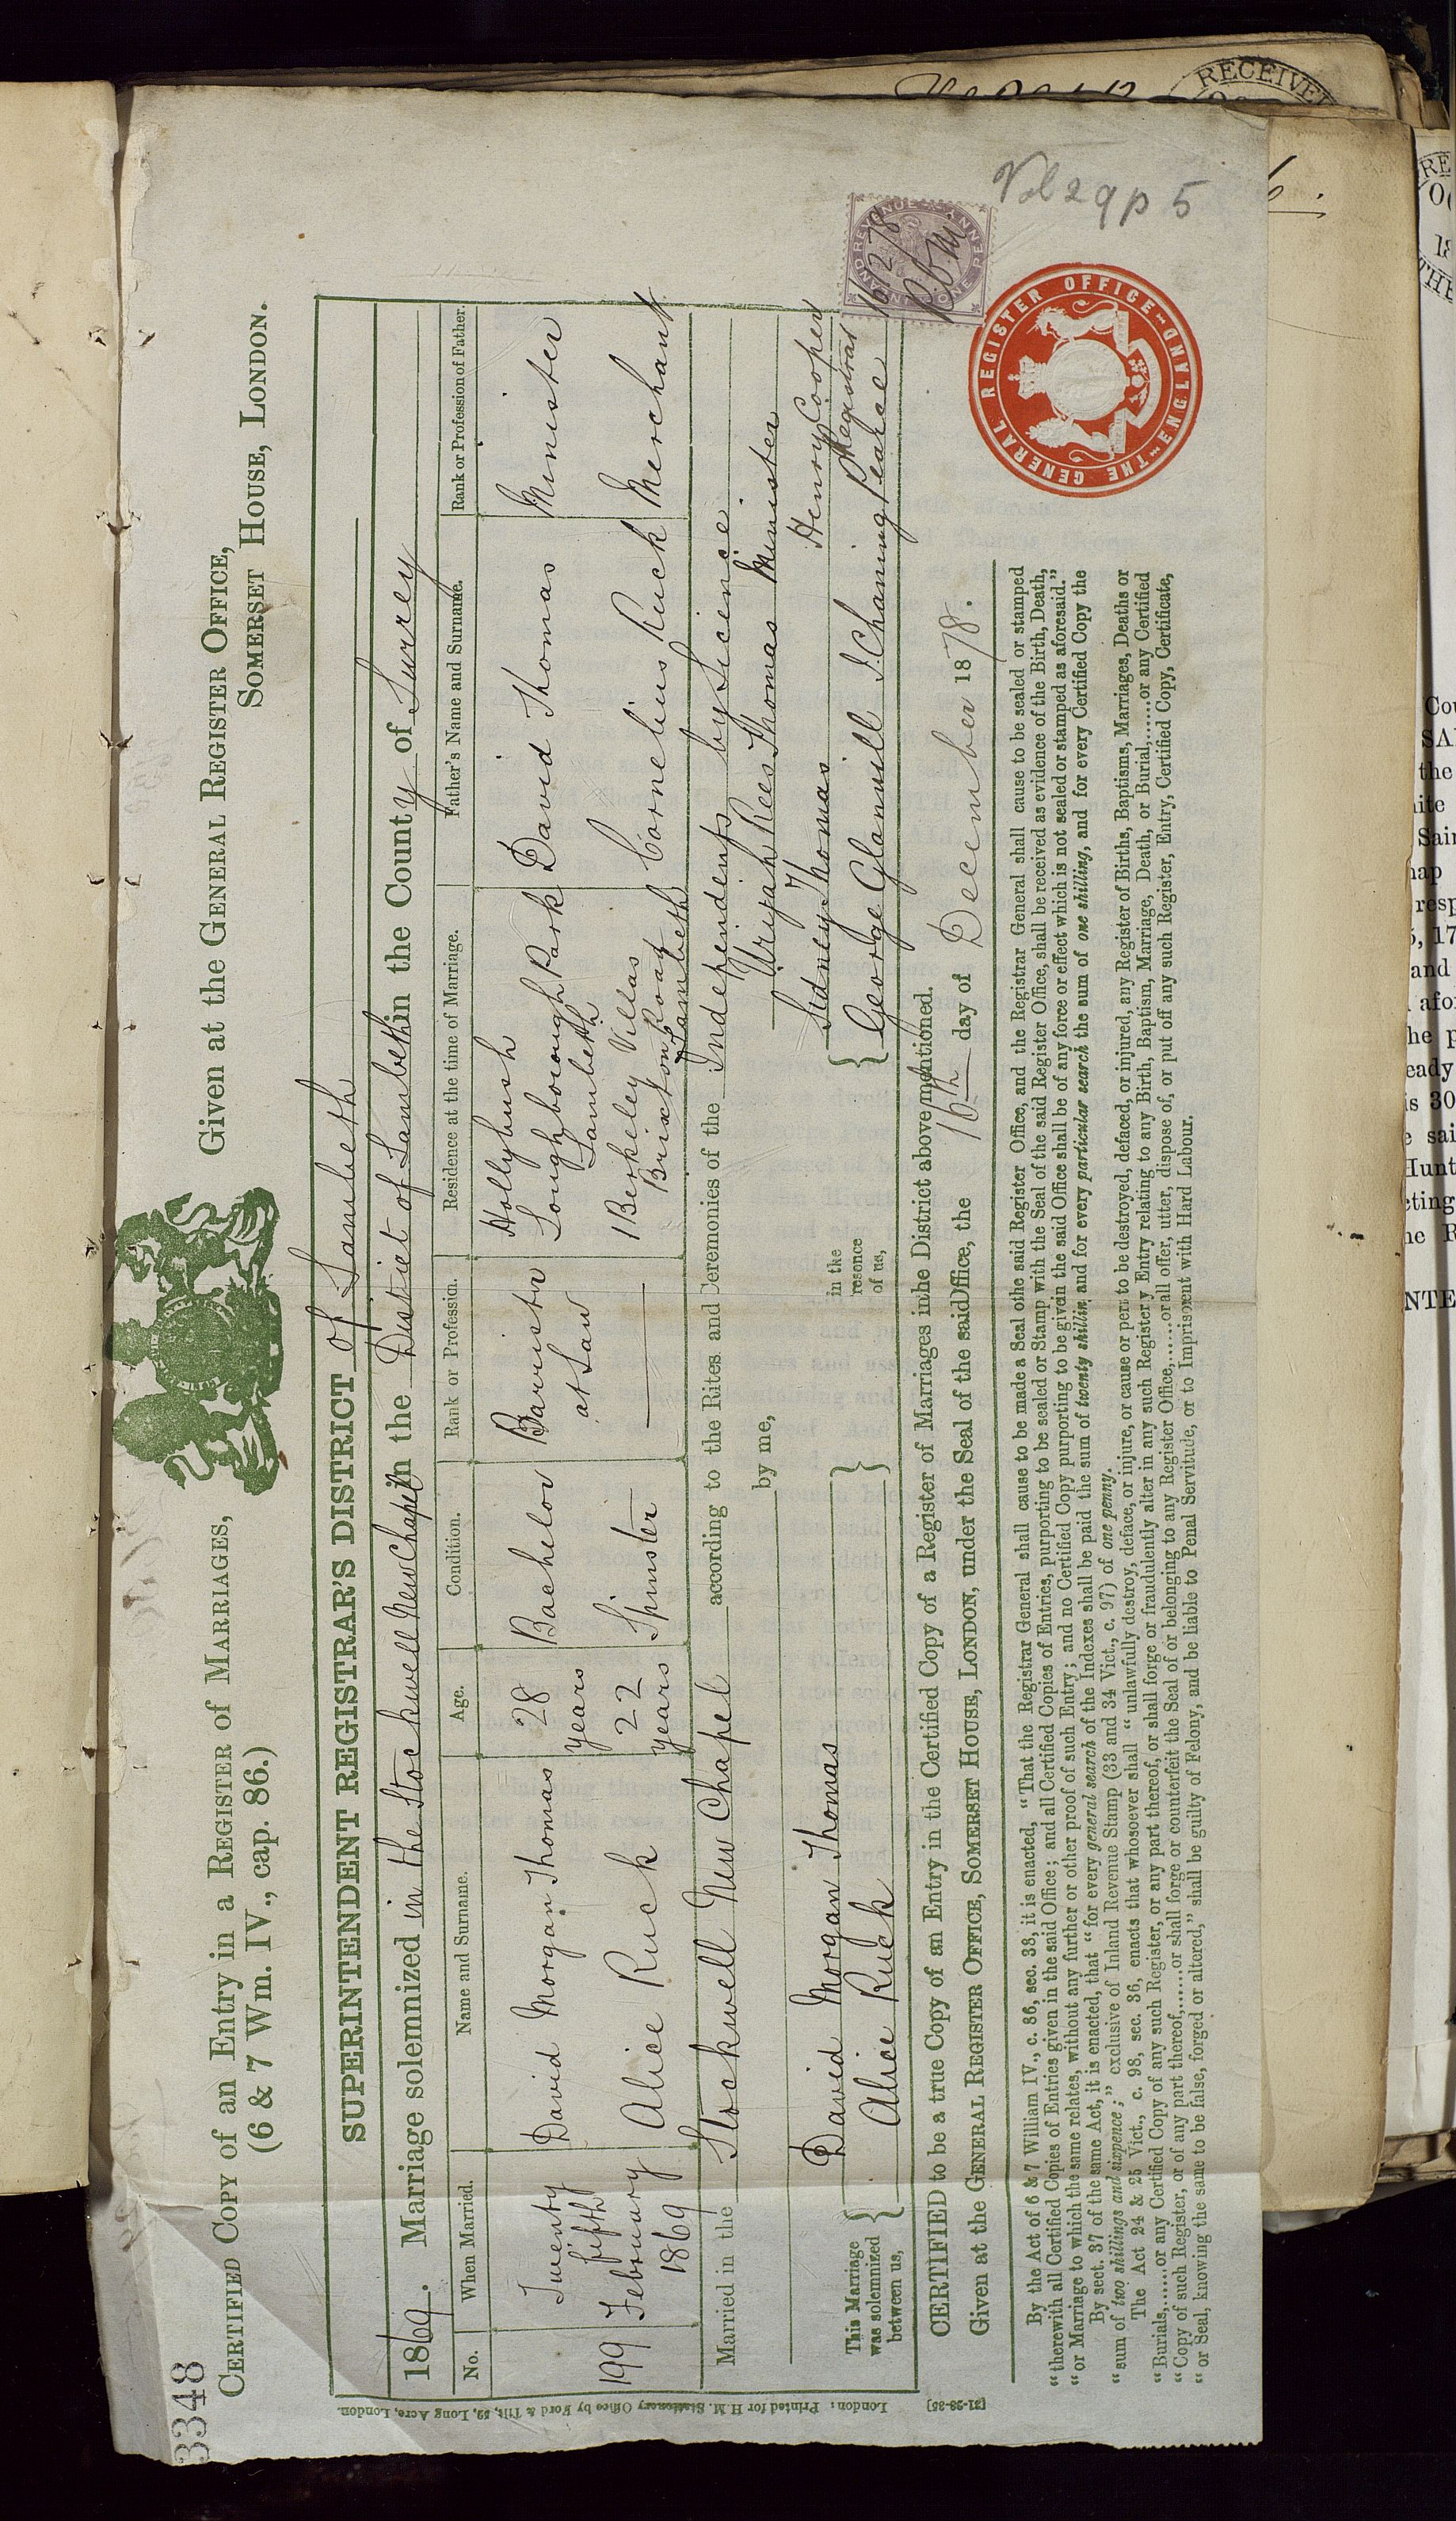 3348
CERTIFIED COPY of an Entry in a REGISTER of MARRIAGES,
(6 & 7 Wm. IV., cap. 86.)
Given at the GENERAL REGISTER OFFICE,
SOMERSET HOUSE, LONDON.
SUPERINTENDENT REGISTRAR'S DISTRICT of Lambeth
1869. Marriage solemnized in the Stockwell New Chapel in the District of Lambeth in the County of Surrey
No. When Married. Name and Surname. Age. Condition. Rank or Profession. Residence at the time of Marriage. Father's Name and Surname. Rank or Profession of Father.
199 Twenty fifth February 1869
David Morgan Thomas 28 years Bachelor Barrister at Law Hollybush Loughborough Park Lambeth David Thomas Minister
Alice Ruck 22 years Spinster — 1 Berkeley Villas Brixton Road Lambeth Cornelius Ruck Merchant
Married in the Stockwell New Chapel according to the Rites and Ceremonies of the Independents by Licence
by me, Urijah Rees Thomas Minister
This Marriage was solemnized between us, { David Morgan Thomas
Alice Ruck } in the resence of us, { Sidney Thomas
George Glanvill J. Chaning Pearce
Henry Cooper
Registrar
CERTIFIED to be a true Copy of an Entry in the Certified Copy of a Register of Marriages in he District above mentioned.
Given at the GENERAL REGISTER OFFICE, SOMERSET HOUSE, LONDON, under the Seal of the said Office, the 16th day of December 1878.
By the Act of 6 & 7 William IV., c. 86, sec. 38, it is enacted, "That the Registrar General shall cause to be made a Seal o the said Register Office, and the Registrar General shall cause to be sealed or stamped
"therewith all Certified Copies of Entries given in the said Office; and all Certified Copies of Entries, purporting to be sealed or Stamp with the Seal of the said Register Office, shall be received as evidence of the Birth, Death,
"or Marriage to which the same relates, without any further or other proof of such Entry; and no Certified Copy purporting to be given the said Office shall be of any force or effect which is not sealed or stamped as aforesaid."
By sect. 37 of the same Act, it is enacted, that "for every general search of the Indexes shall be paid the sum of twenty shillin, and for every particular search the sum of one shilling, and for every Certified Copy the
"sum of two shillings and sixpence;" exclusive of Inland Revenue Stamp (33 and 34 Vict., c. 97) of one penny.
The Act 24 & 25 Vict., c. 98, sec. 36, enacts that whosoever shall "unlawfully destroy, deface, or injure, or cause or peri to be destroyed, defaced, or injured, any Register of Births, Baptisms, Marriages, Deaths or
"Burials,......or any Certified Copy of any such Register, or any part thereof, or shall forge or fraudulently alter in any such Register y Entry relating to any Birth, Baptism, Marriage, Death, or Burial,......or any Certified
"Copy of such Register, or of any part thereof,......or shall forge or counterfeit the Seal of or belonging to any Register Office,......or all offer, utter, dispose of, or put off any such Register, Entry, Certified Copy, Certificate,
"or Seal, knowing the same to be false, forged or altered," shall be guilty of Felony, and be liable to Penal Servitude, or to Imprisonent with Hard Labour.
London: Printed for H.M. Stationery Office by Ford & Tilt, 52, Long Acre, London.
[21-28-35]
INLAND REVENUE ONE PENNY
16/12/78
THE GENERAL REGISTER OFFICE ENGLAND
Vol 29 p 5
RECEIVED